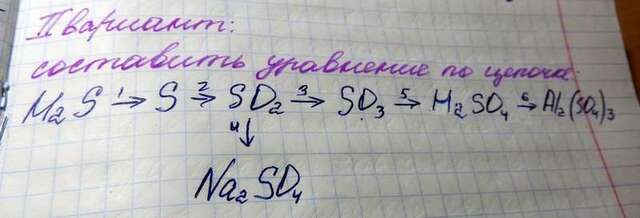 II вариант:
составить уравнение по цепочке:
H2S 1→ S 2→ SO2 3→ SO3 5→ H2SO4 6→ Al2(SO4)3
4↓
Na2SO4